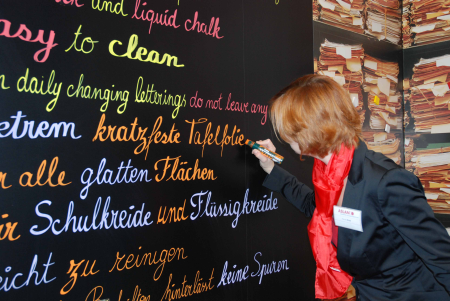 and liquid chalk
easy to clean
daily changing letterings do not leave any
kratzfeste Tafelfolie
alle glatten Flächen
Schulkreide und Flüssigkreide
leicht zu reinigen
hinterlässt keine Spuren